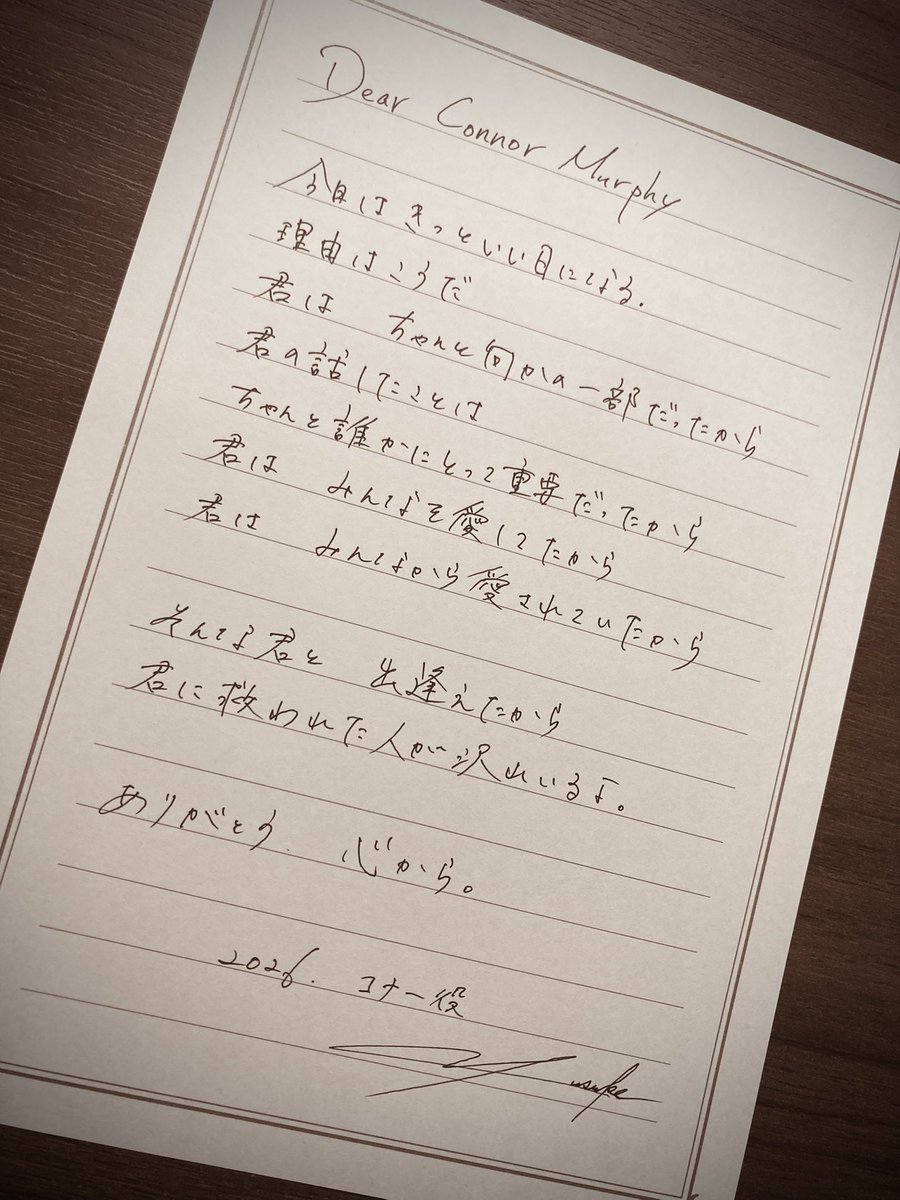 Dear Connor Murphy
今日はきっといい日になる.
理由はこうだ
君は ちゃんと何かの一部だったから
君の話したことは
ちゃんと誰かにとって重要だったから
君は みんなを愛してたから
君は みんなから愛されていたから
そんな君と 出逢えたから
君に救われた人が沢山いるよ。
ありがとう. 心から。
2026. コナー役
Yusuke